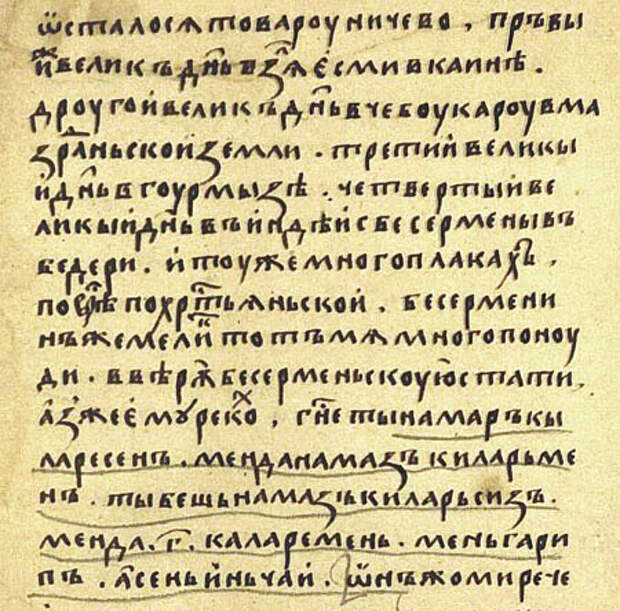 ѿсталосѧ товароу ничево, пръвы
и҆ж великъ д҃нь взѧⷧ҇ е҆сми в каинѣ.
дроугои великъ д҃нь в чебоукароу в ма
зраⷩ҇ньскои земли. третий великы
й д҃нь в гоурмызѣ. четвертый ве
ликый д҃нь въ и҆ндѣи с бесермены въ
бедери. и҆ тоу же много плакаⷯ,
по вѣрѣ по хртⷭ҇ьяньской. бесермени
нъ же мелиⷦ҇ тотъ мѧ много поноу
ди. в вѣрѫ бесерменьскоую стати,
а҆з же е҆мꙋ рекоⷯ, гⷭ҇не ты намаръ кы
ларесенъ. мен да намазъ киларьме
нъ. ты бешь намазъ киларьсизъ.
мен дл. г҃. каларемень. мень гари
пъ. а҆сень иньчай. ѡ҆нъ ж ми рече